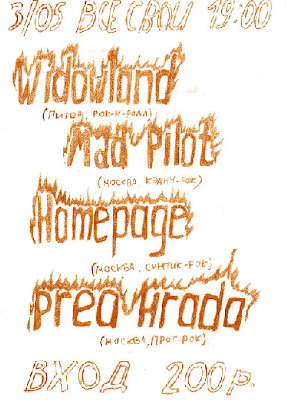 3/05 ВСЕ СВОИ 19:00
Widowland
(ПИТЕР, РОК-Н-РОЛЛ)
Mad Pilot
(МОСКВА
Homepage
(МОСКВА, СИНТИК-РОК)
Prea Hrada
(МОСКВА, ПРОГ-РОК)
ВХОД 200 р.